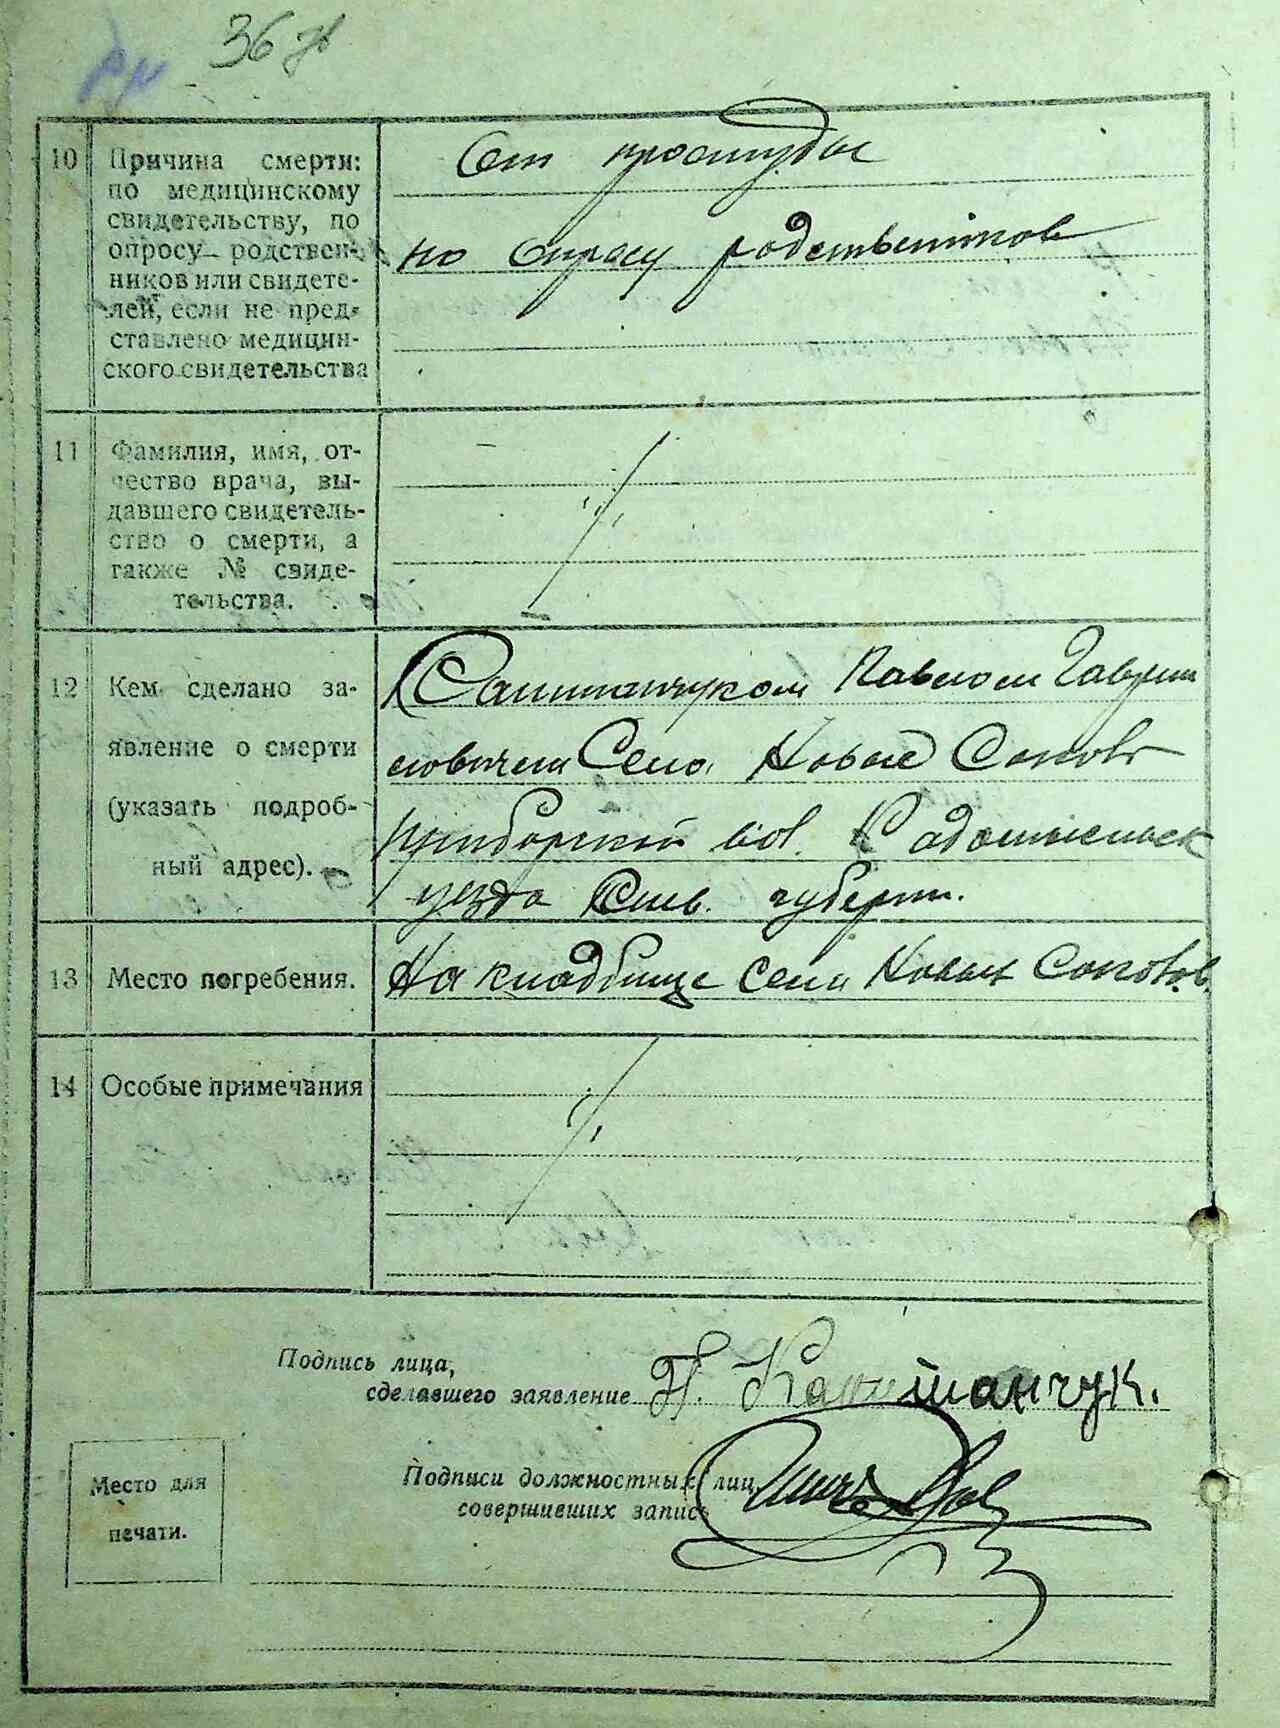 36
10 Причина смерти:
по медицинскому
свидетельству, по
опросу родствен-
ников или свидете-
лей, если не пред-
ставлено медицин-
ского свидетельства
От простуды
по опросу родственников
11 Фамилия, имя, от-
чество врача, вы-
давшего свидетель-
ство о смерти, а
также № свиде-
тельства.
12 Кем сделано за-
явление о смерти
(указать подроб-
ный адрес).
Павлом Гаврил
овичем Села Новые
вол. Радомысльск
уезда Киев. губерн.
13 Место погребения.
На кладбище села Новых
14 Особые примечания
Подпись лица,
сделавшего заявление П.
Подписи должностных лиц,
совершивших запись
Место для
печати.